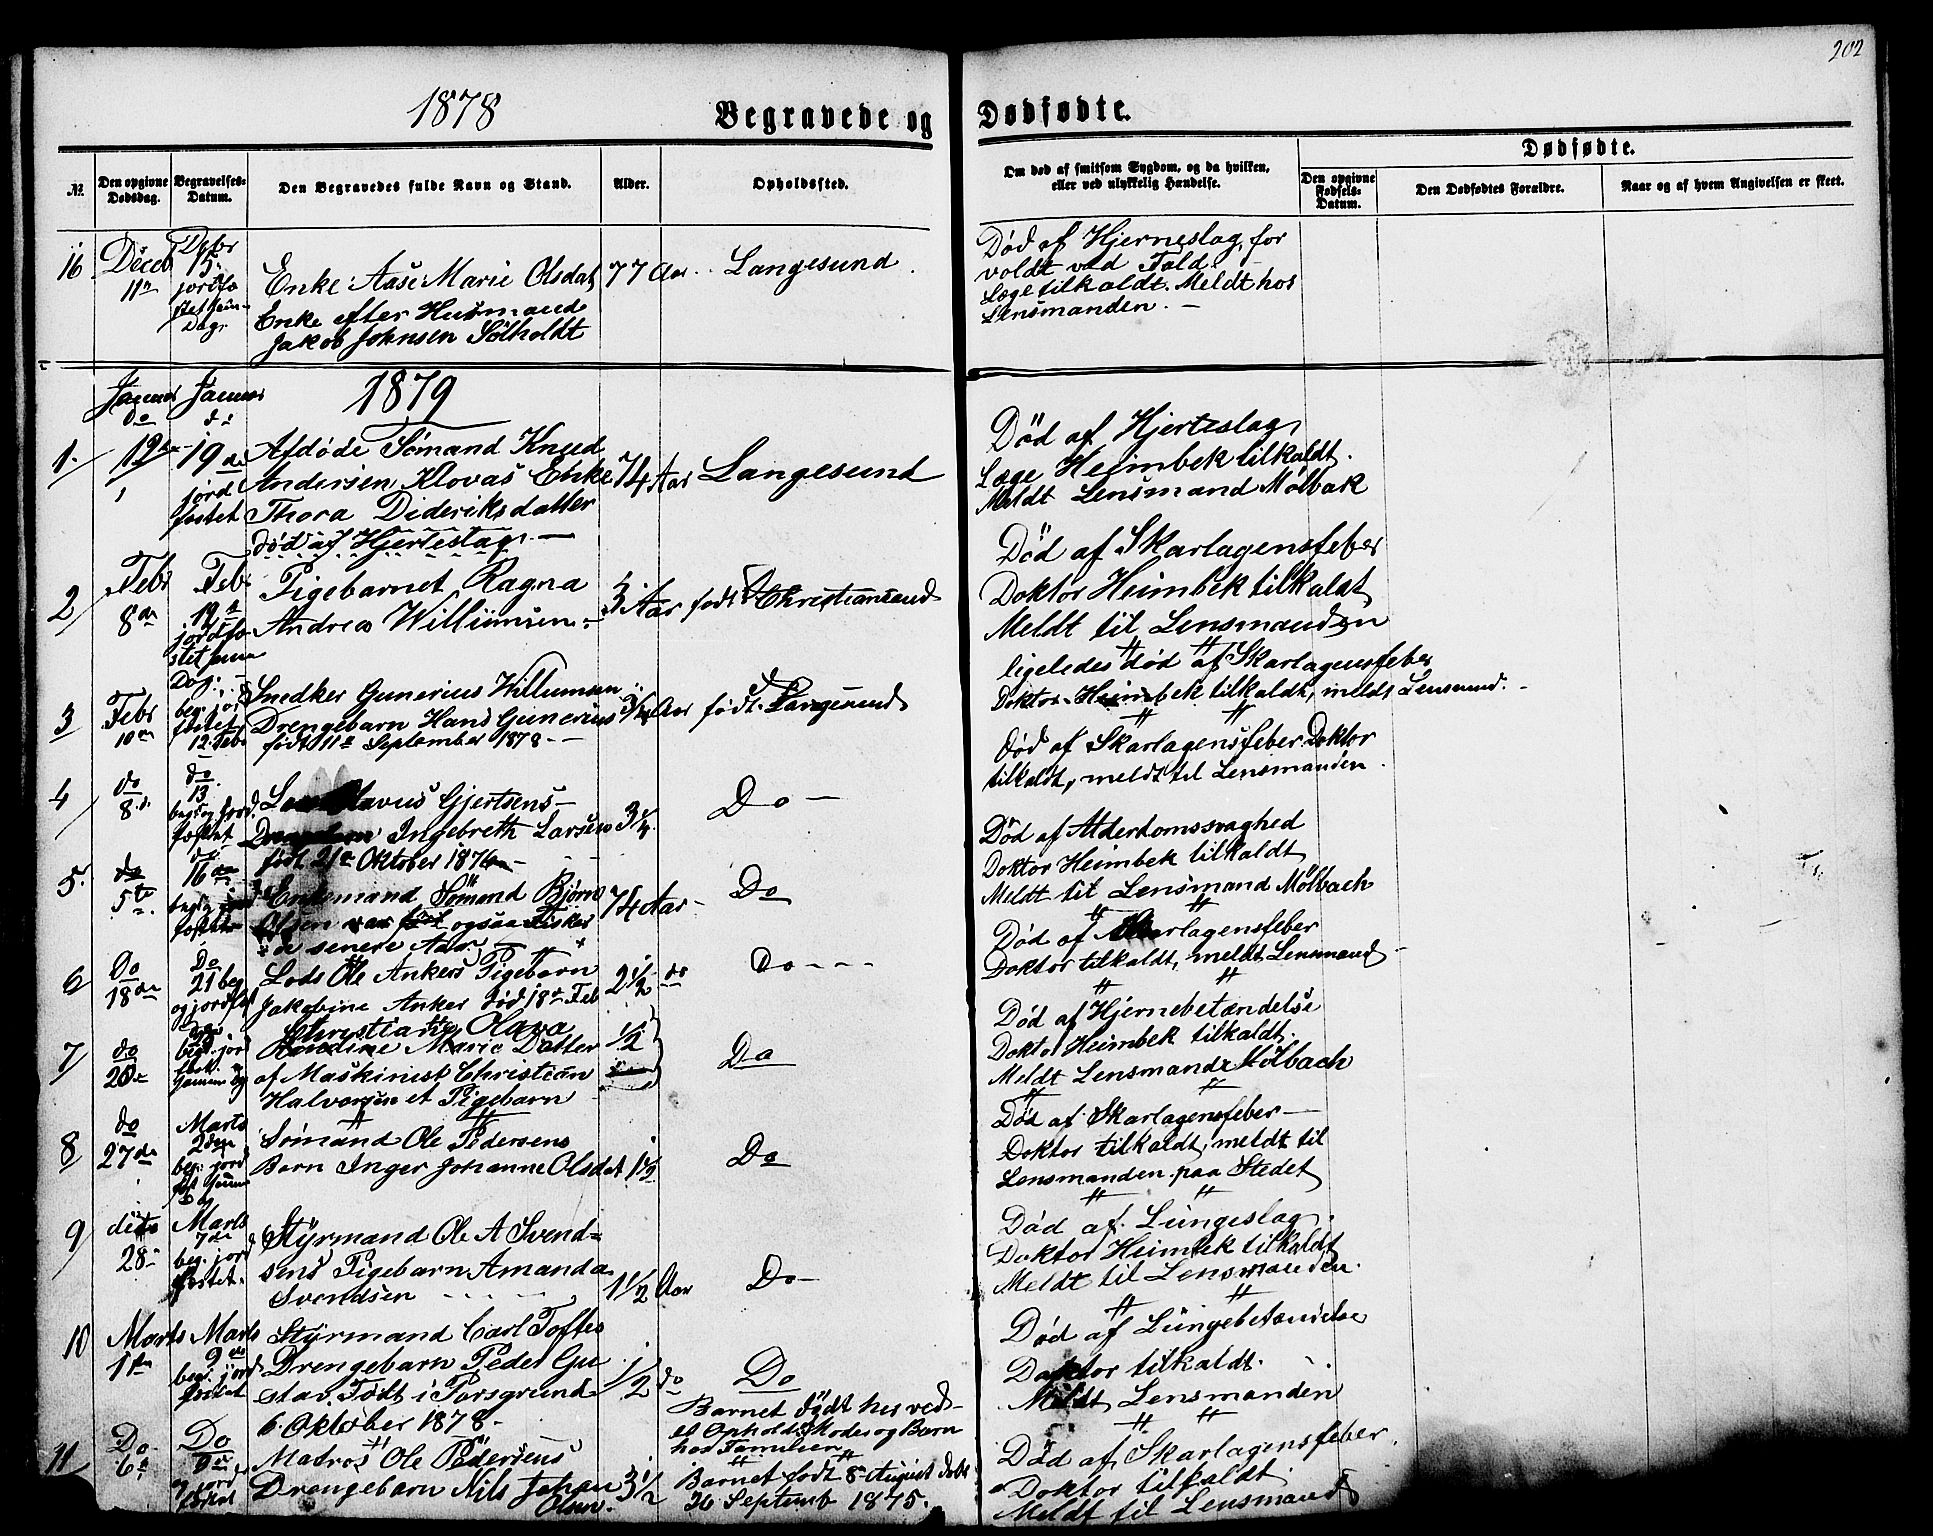 202
1878
Begravede og Dødfødte.
№
Den opgivne Dødsdag.
Begravelses-Datum.
Den Begravedes fulde Navn og Stand.
Alder.
Opholdssted.
Om død af smitsom Sygdom, og da hvilken, eller ved ulykkelig Hændelse.
Dødfødte.
Den opgivne Fødsels-Datum.
Den Dødfødtes Forældre.
Naar og af hvem Angivelsen er skeet.
16 Deceb Debr
11te 15
jordfæ
stet samme
Dag
Enke Aase Marie Olsdat 77 Aar Langesund
Enke efter Husmand
Jakob Johnsen Sølholdt
Død af Hjerneslag, for
voldt ved Fald.
Læge tilkaldt. Meldt hos
Lensmanden. —
Januar Januar 1879
do d:
1. 12te 19de
jord
fæstet
Afdøde Sømand Knud
Andersen Klovas Enke 74 Aar Langesund
Thora Dideriksdatter
død af Hjerteslag. —
Død af Hjerteslag
Læge Heimbek tilkaldt.
Meldt Lensmand Mølbak
2 Febr Feb.
8de 12te
jordfæ
stet samme
Dag.
Pigebarnet Ragna
Andrea Willumsen 3 Aar født Christiansand
Død af Skarlagensfeber
Doktor Heimbek tilkaldt,
Meldt til Lensmanden
3 Febr beg. jord
10de fæstet
12. Feb.
Snedker Gunerius Willumsen
Drengebarn Hans Gunerius 3/4 Aar født Langesund
født 11te September 1878 —
ligeledes død af Skarlagensfeber
Doktor Heimbek tilkaldt, meldt Lensmand. —
4 do do
8. 13
begr. og jord
fæstet
Olavus Gjertsens —
Ingebreth Larsen 3 1/4 Do —
født 21de Oktober 1876 —
død af Skarlagensfeber Doktor
tilkaldt, meldt til Lensmanden.
5. do do
5te 16de
begr. og jord
fæstet
Enkemand Sømand Bjørn
Olsen var født også Fisker 74 Aar Do
de senere Aar
Død af Alderdomssvaghed
Doktor Heimbek tilkaldt
Meldt til Lensmand Mølbach
6 Do Do
18de 21 beg
og jordfst
Lods Ole Ankers Pigebarn 2 1/2 do Do - - -
Jakobine Anker død 18de Feb
Død af Skarlagensfeber
Doktor tilkaldt, meldt Lensmand —
7 do
28de begr. jord
fæst.
samme Dag
Christiane Olava
Marie Datter 1/2 Do
af Maskinist Christian
Halvorsen et Pigebarn
Død af Hjernebetændelse
Doktor Heimbek tilkaldt.
Meldt Lensmand Mølbach
8 do Marts
27de 2den
beg. jord
fæst samme
Dag
Sømand Ole Pedersens
Barn Inger Johanne Olsdat 1 1/2 Do
Død af Skarlagensfeber —
Doktor tilkaldt, meldt til
Lensmanden paa Stedet
9 dito Marts
28 7de
beg. jord
fæstet.
Styrmand Ole A Svend-
sens Pigebarn Amanda
Svendsen 1 1/2 Aar Do —
Død af Lungeslag.
Doktor Heimbek tilkaldt
Meldt til Lensmanden.
10 Marts Marts
1ste 9de
beg. jord
fæstet
Styrmand Carl Toftes
Drengebarn Peder Gu
stav. Født i Porsgrund 1/2 do Do
6 Oktober 1878 —
Barnet døde her ved
et Ophold, Moder og Barn
hos Familien
Død af Lungebetændelse
Doktor tilkaldt.
Meldt Lensmanden
11 Do Do
6te
jord
fæstet
Matros Ole Pedersens
Drengebarn Nils Johan 3 1/2
Olsen.
Barnet født 8 August døbt
26 Septemb 1875.
Død af Skarlagensfeber.
Doktor tilkaldt
Meldt til Lensmand